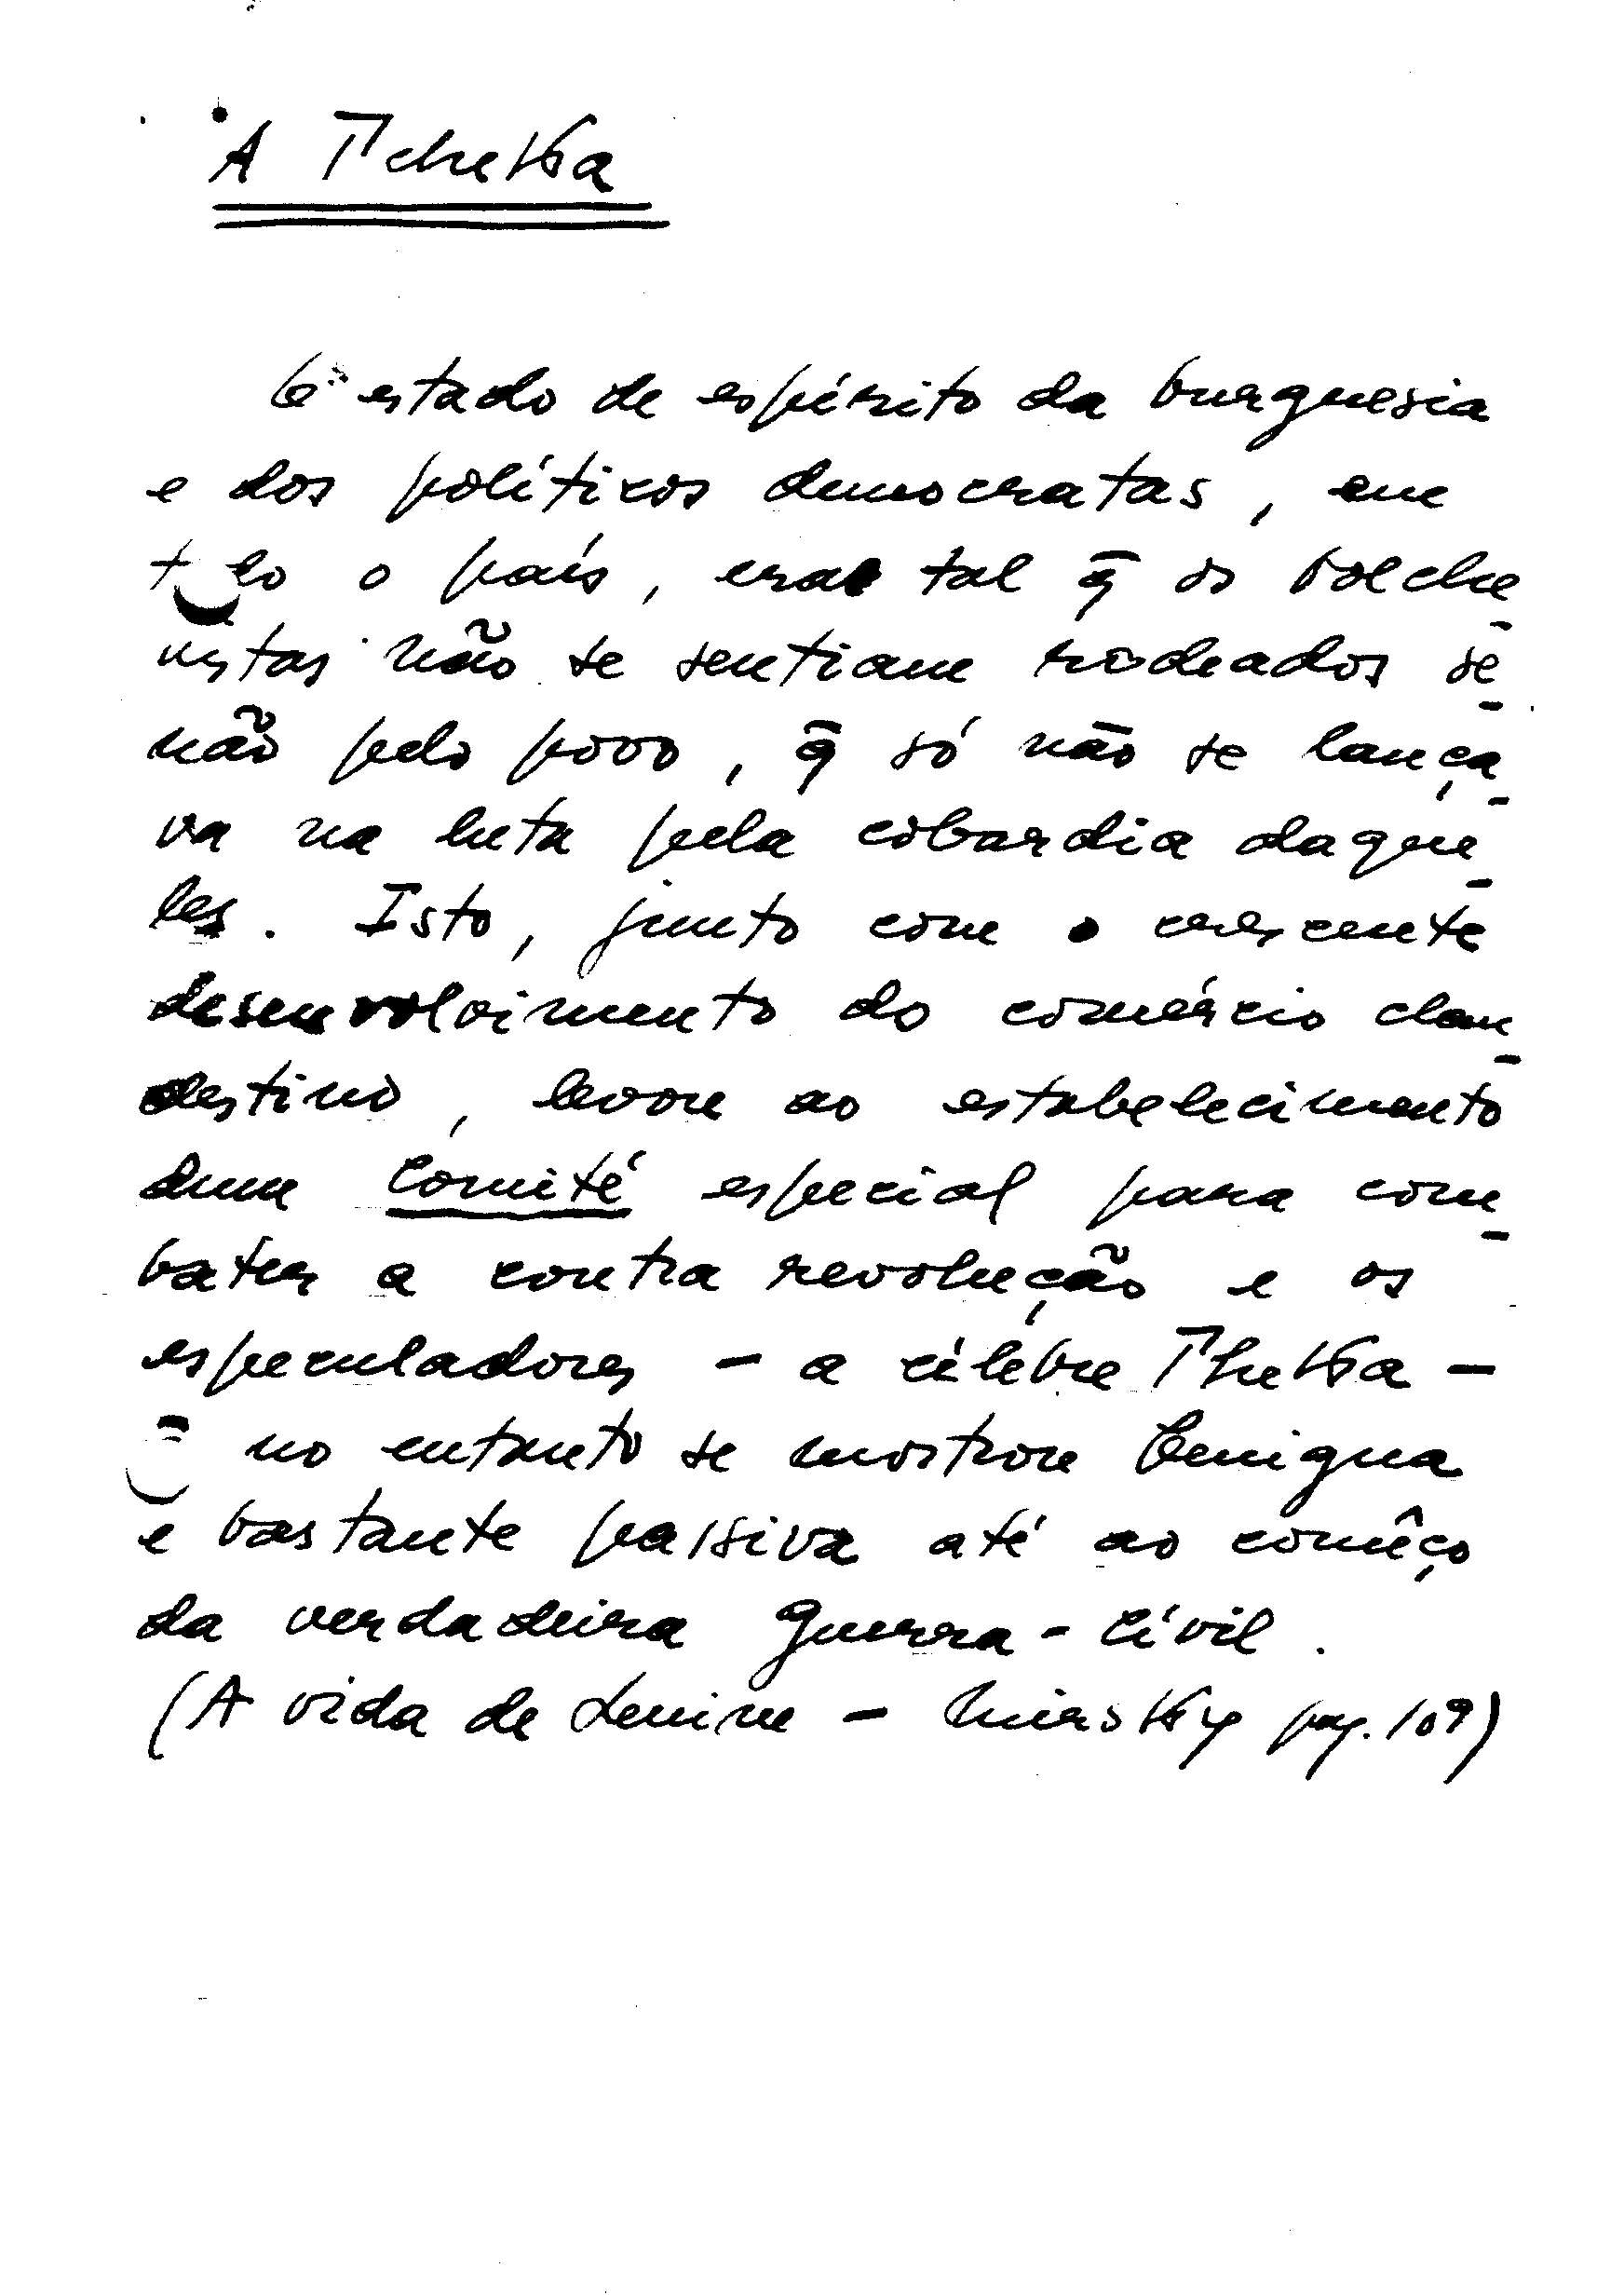 A Tcheka
O estado de espírito da burguesia
e dos políticos democratas, em
todo o país, era tal q̄ os bolche-
vistas não se sentiam rodeados se-
não pelo povo, q̄ só não se lança-
va na luta pela cobardia daque-
les. Isto, junto com o crescente
desenvolvimento do comércio clan-
destino, levou ao estabelecimento
dum Comité especial para com-
bater a contra revolução e os
especuladores – a célebre Theka –
no entanto se mostrou benigna
e bastante passiva até ao comêço
da verdadeira guerra-civil.
(A vida de Lenine – Mirsky pag. 109)